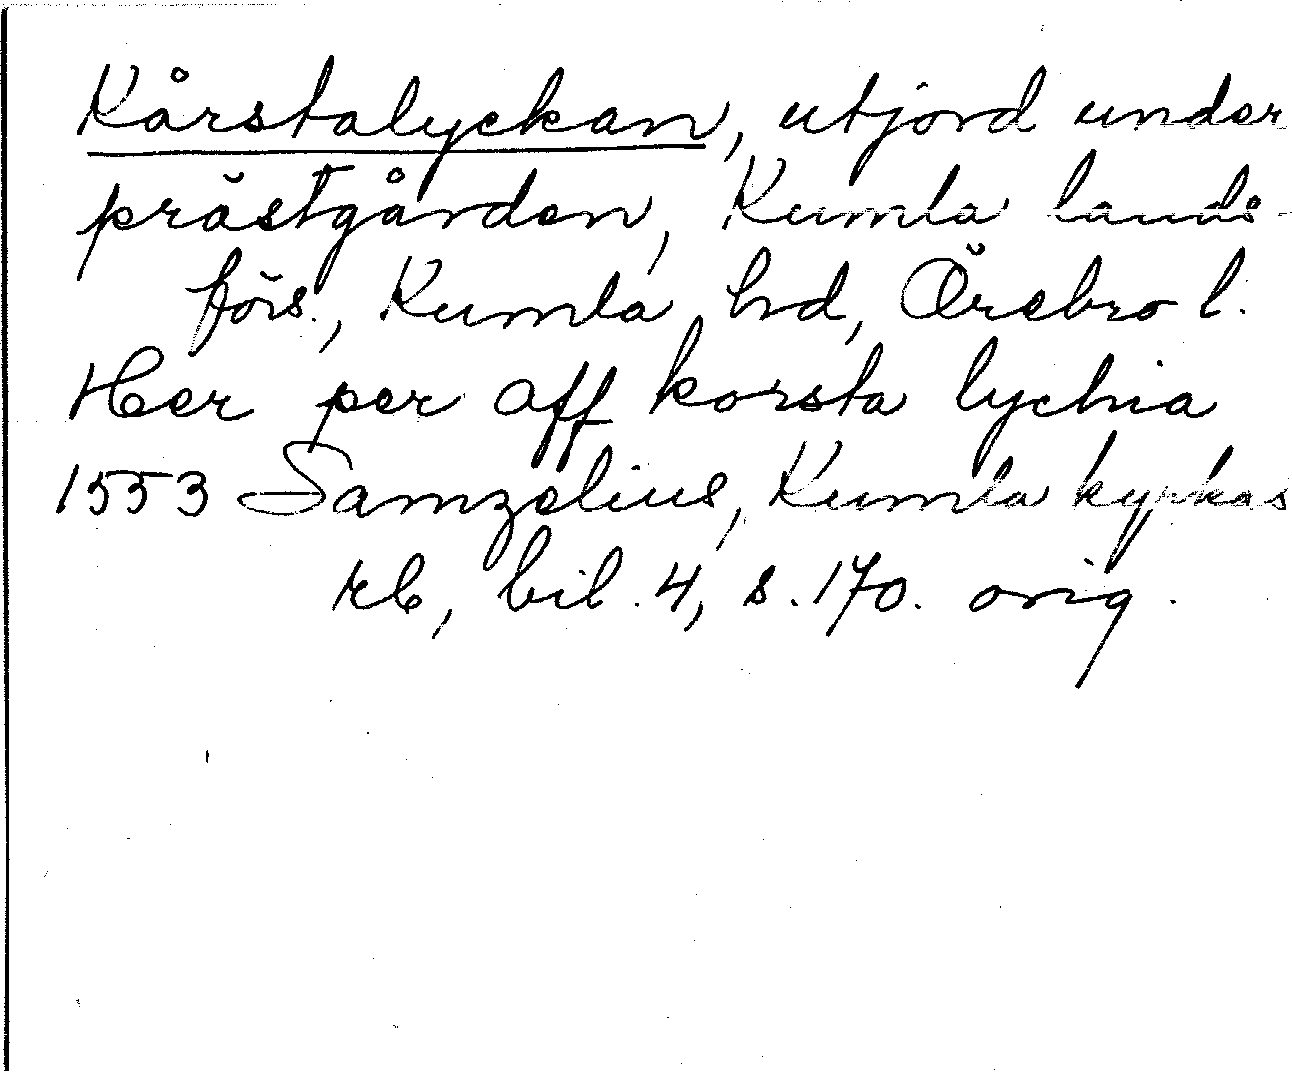 Kårstalyckan, utjord under
prästgården, Kumla lands-
förs., Kumla hd, Örebro l.
Her per aff korsta lychia
1553 Samzelius, Kumla kyrkas
rb, bil. 4, s. 170. orig.